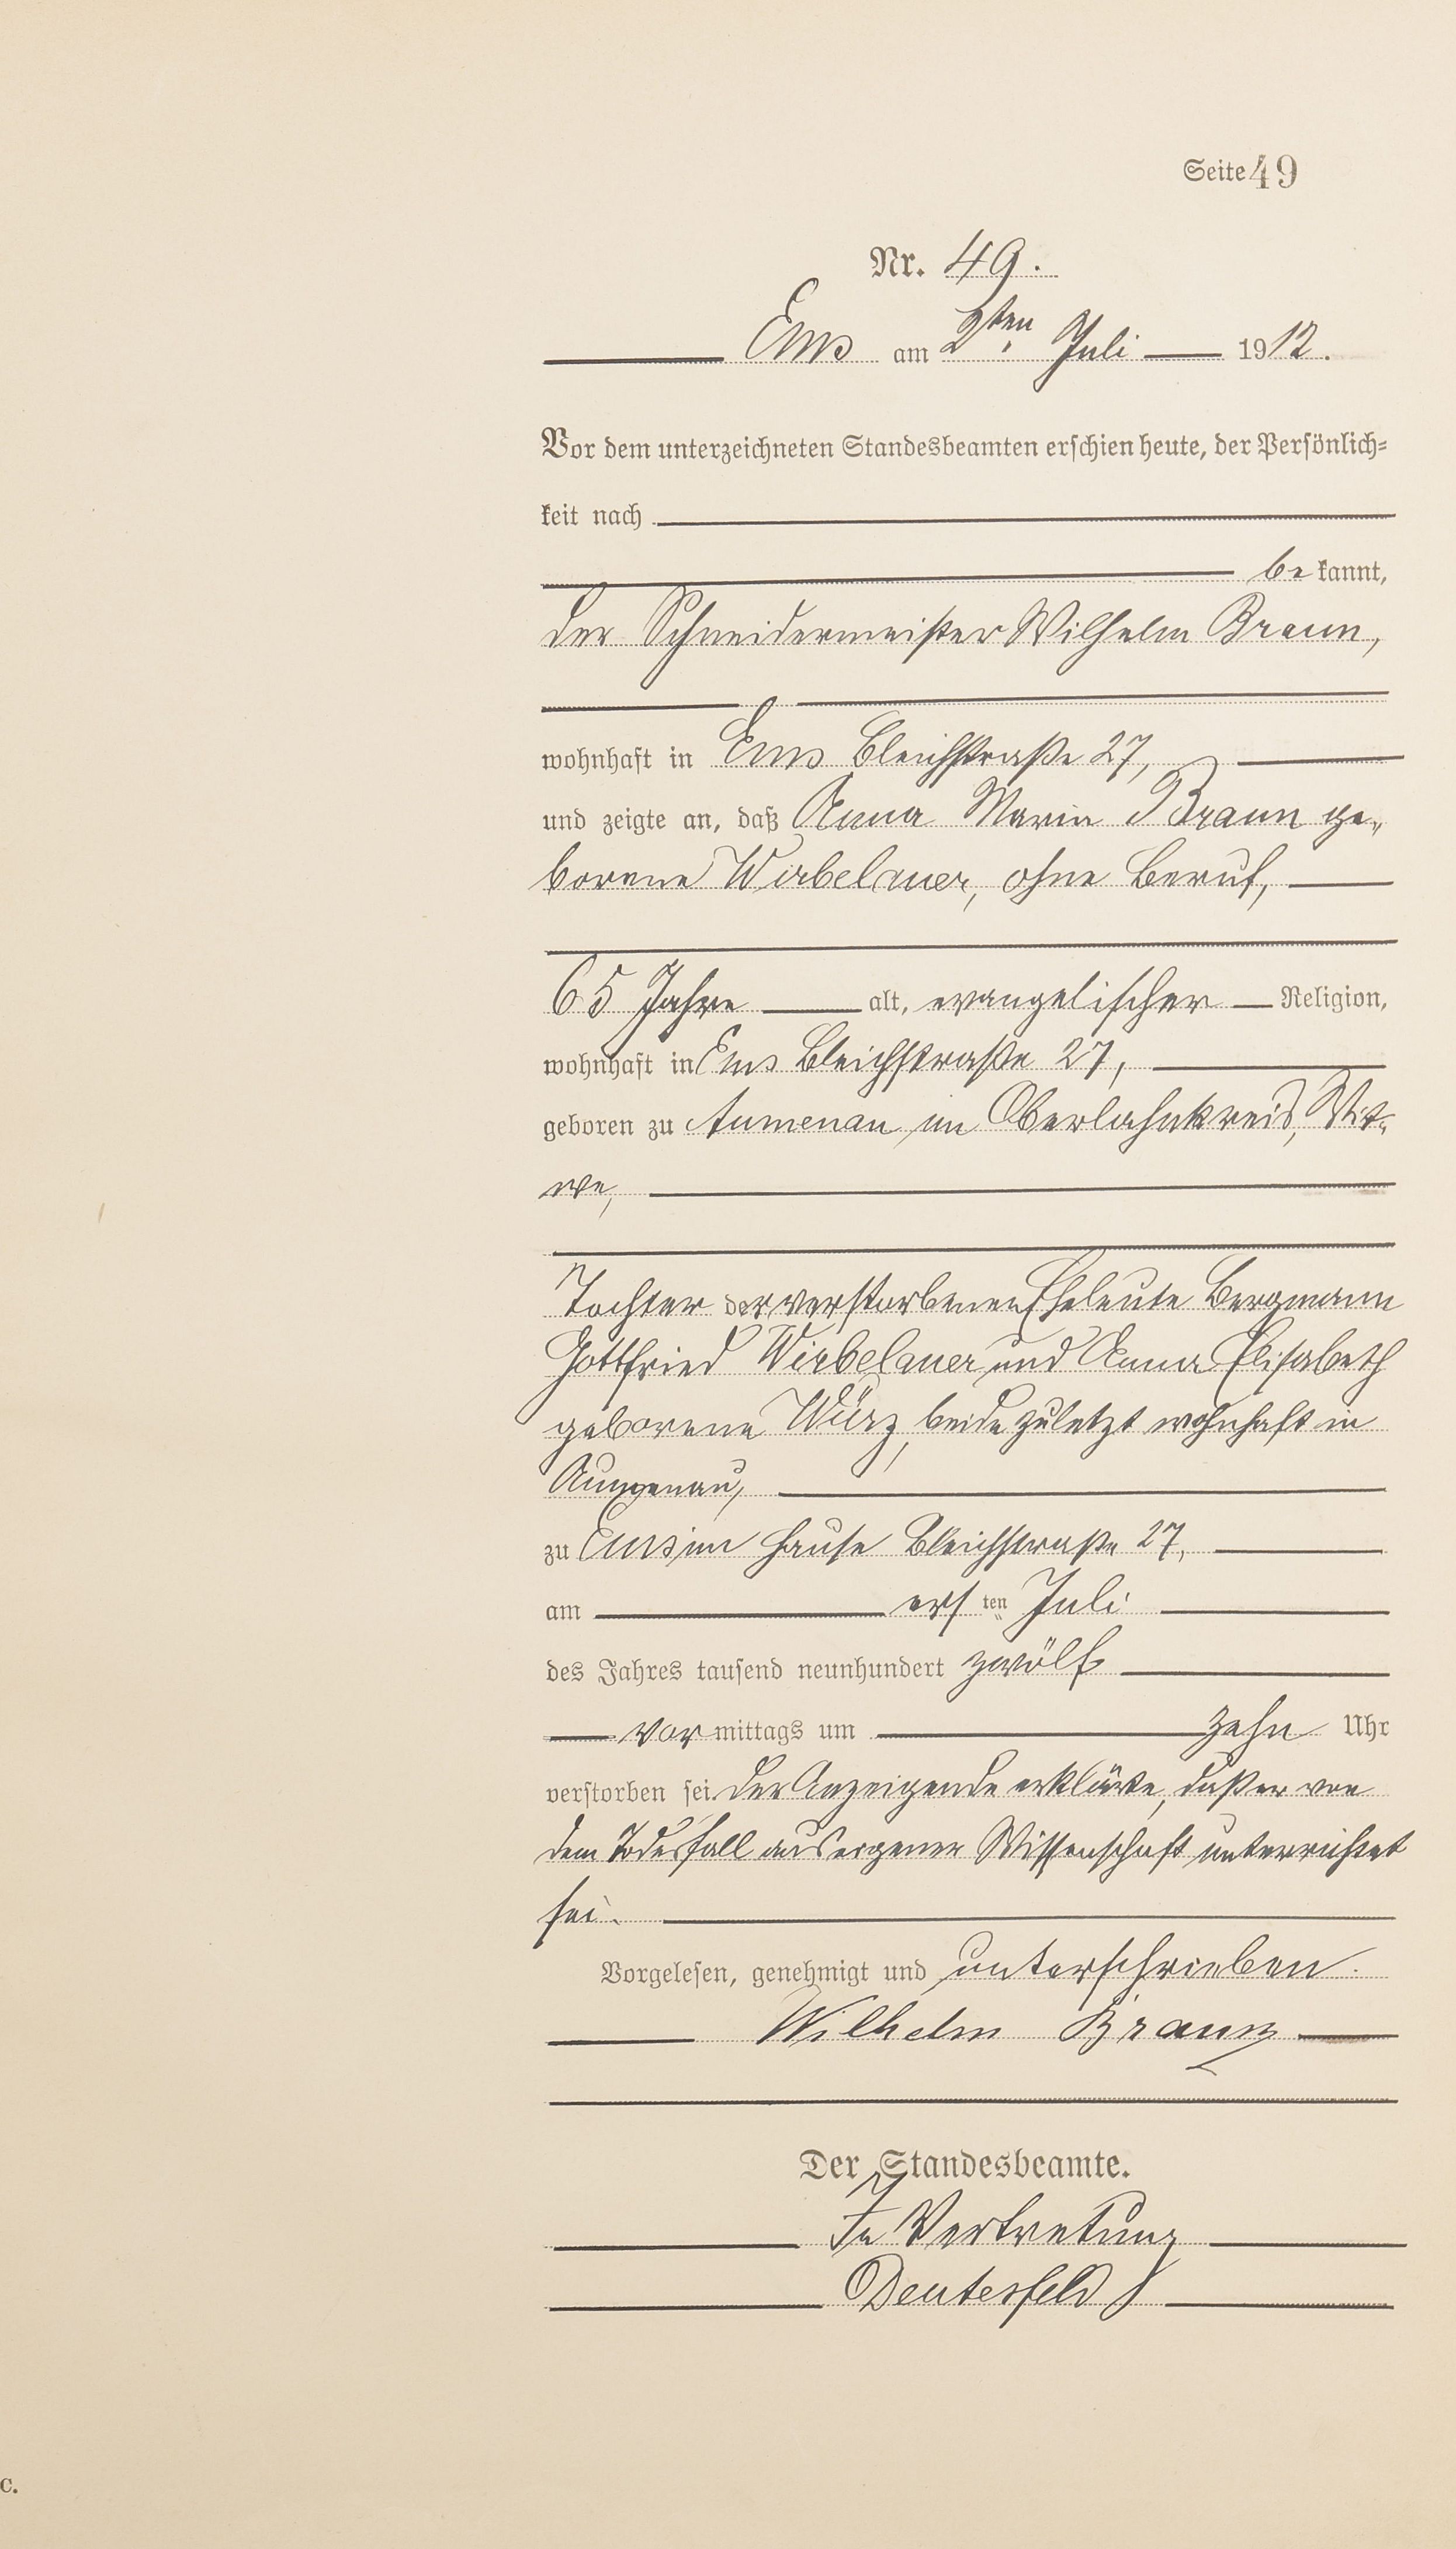 Seite 49
Nr. 49.
Ems am 2ten Juli 1912.
Vor dem unterzeichneten Standesbeamten erschien heute, der Persönlich=
keit nach
be kannt,
der Schneidermeister Wilhelm Braun,
wohnhaft in Ems Bleichstraße 27,
und zeigte an, daß Anna Maria Braun ge„
borene Wirbelauer, ohne Beruf,
65 Jahre alt, evangelischer Religion,
wohnhaft in Ems Bleichstraße 27,
geboren zu Aumenau im Oberlahnkreis, Wit„
we,
Tochter der verstorbenen Eheleute Bergmann
Gottfried Wirbelauer und Anna Elisabeth
geborene Würz, beide zuletzt wohnhaft in
Aumenau,
zu Ems im Hause Bleichstraße 27,
am ers ten Juli
des Jahres tausend neunhundert zwölf
Vor mittags um zehn Uhr
verstorben sei. Der Anzeigende erklärte, daß er von
dem Todesfall aus eigener Wissenschaft unterrichtet
sei.
Vorgelesen, genehmigt und unterschrieben.
Wilhelm Braun
Der Standesbeamte.
In Vertretung
Deutesfeld
C.